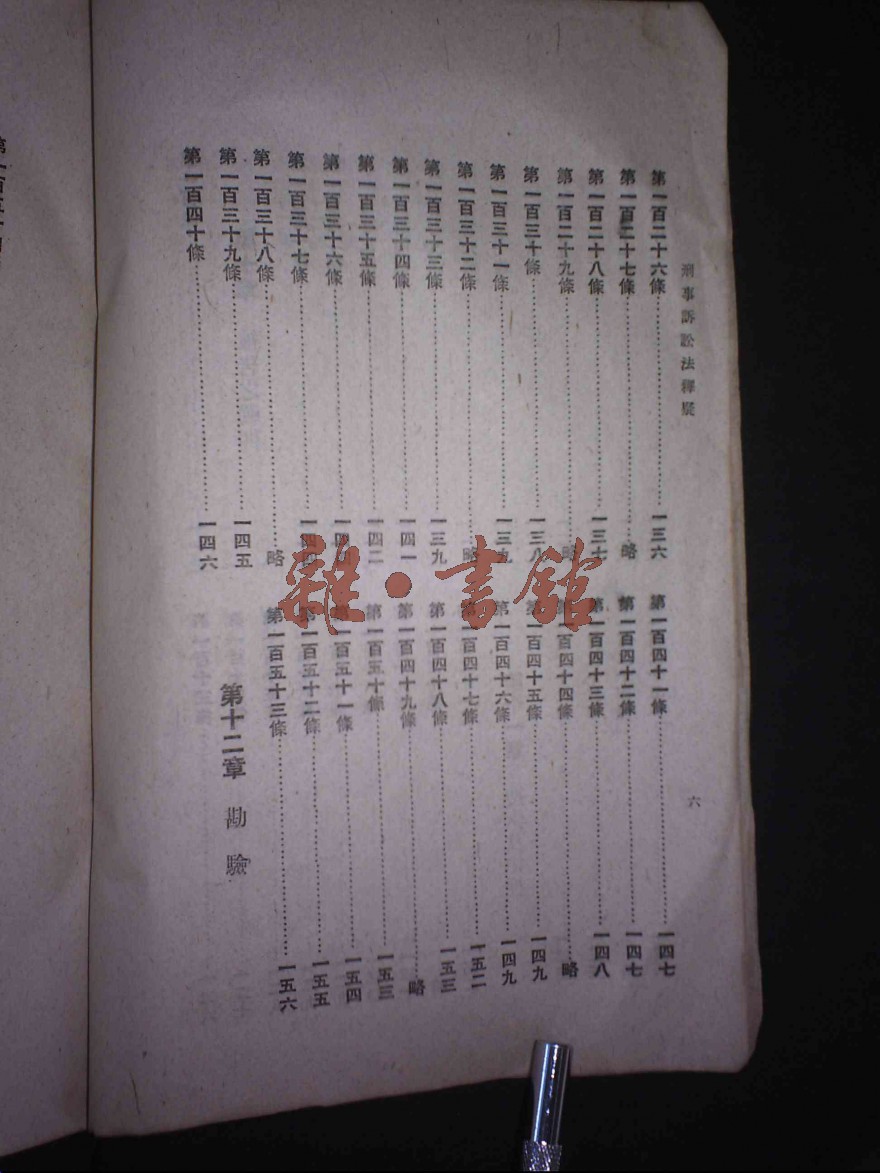 刑事訴訟法釋疑
六
第一百二十六條……一三六
第一百二十七條……略
第一百二十八條……一三七
第一百二十九條……略
第一百三十條……一三八
第一百三十一條……一三九
第一百三十二條……略
第一百三十三條……一三九
第一百三十四條……一四一
第一百三十五條……一四二
第一百三十六條……一四
第一百三十七條……一四四
第一百三十八條……略
第一百三十九條……一四五
第一百四十條……一四六
第一百四十一條……一四七
第一百四十二條……一四七
第一百四十三條……一四八
第一百四十四條……略
第一百四十五條……一四九
第一百四十六條……一四九
第一百四十七條……一五二
第一百四十八條……一五三
第一百四十九條……略
第一百五十條……一五三
第一百五十一條……一五四
第一百五十二條……一五五
第一百五十三條……一五六
第十二章 勘驗
雜·書館